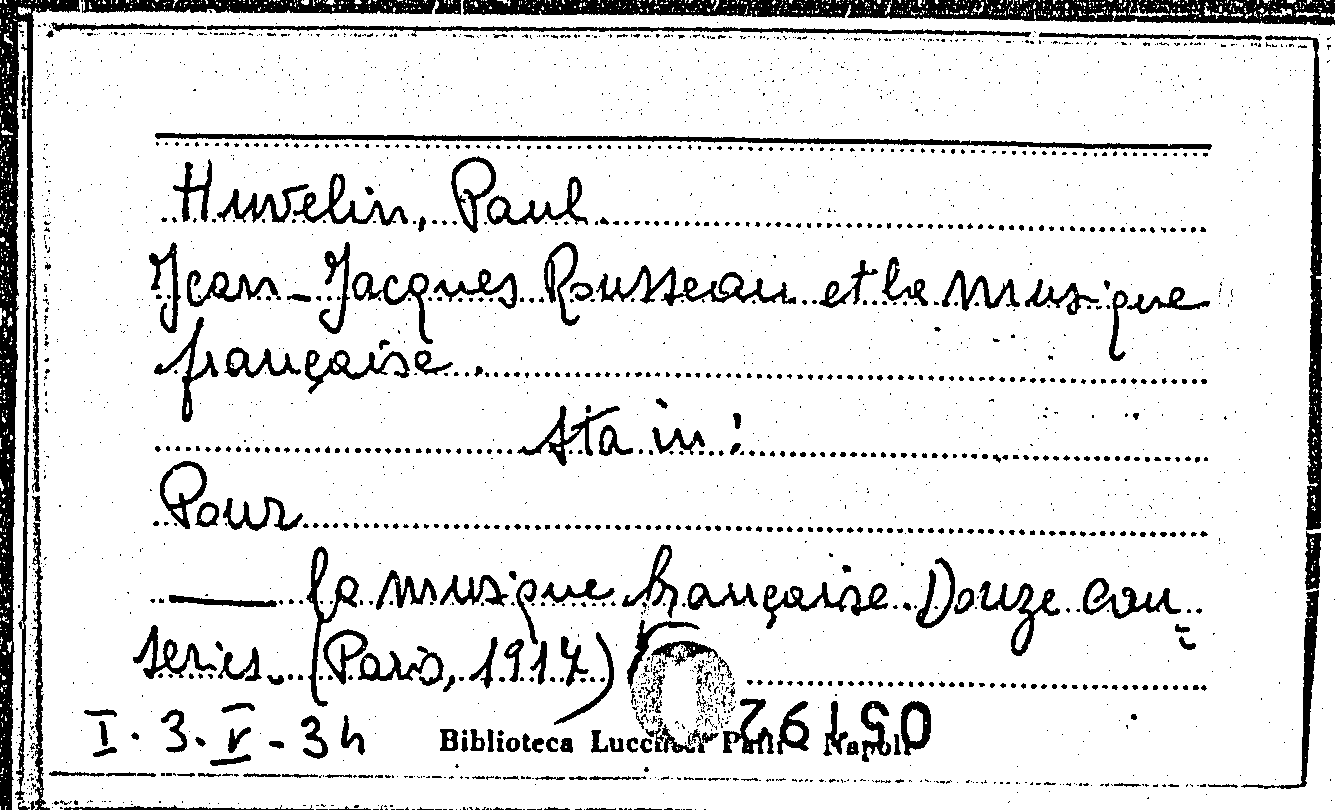 Huvelin, Paul.
Jean-Jacques Rousseau et la musique
française.
sta in:
Pour
—— la musique française. Douze cau=
series. (Paris, 1917)
I. 3. V - 34
Biblioteca Lucchesi Palli - Napoli